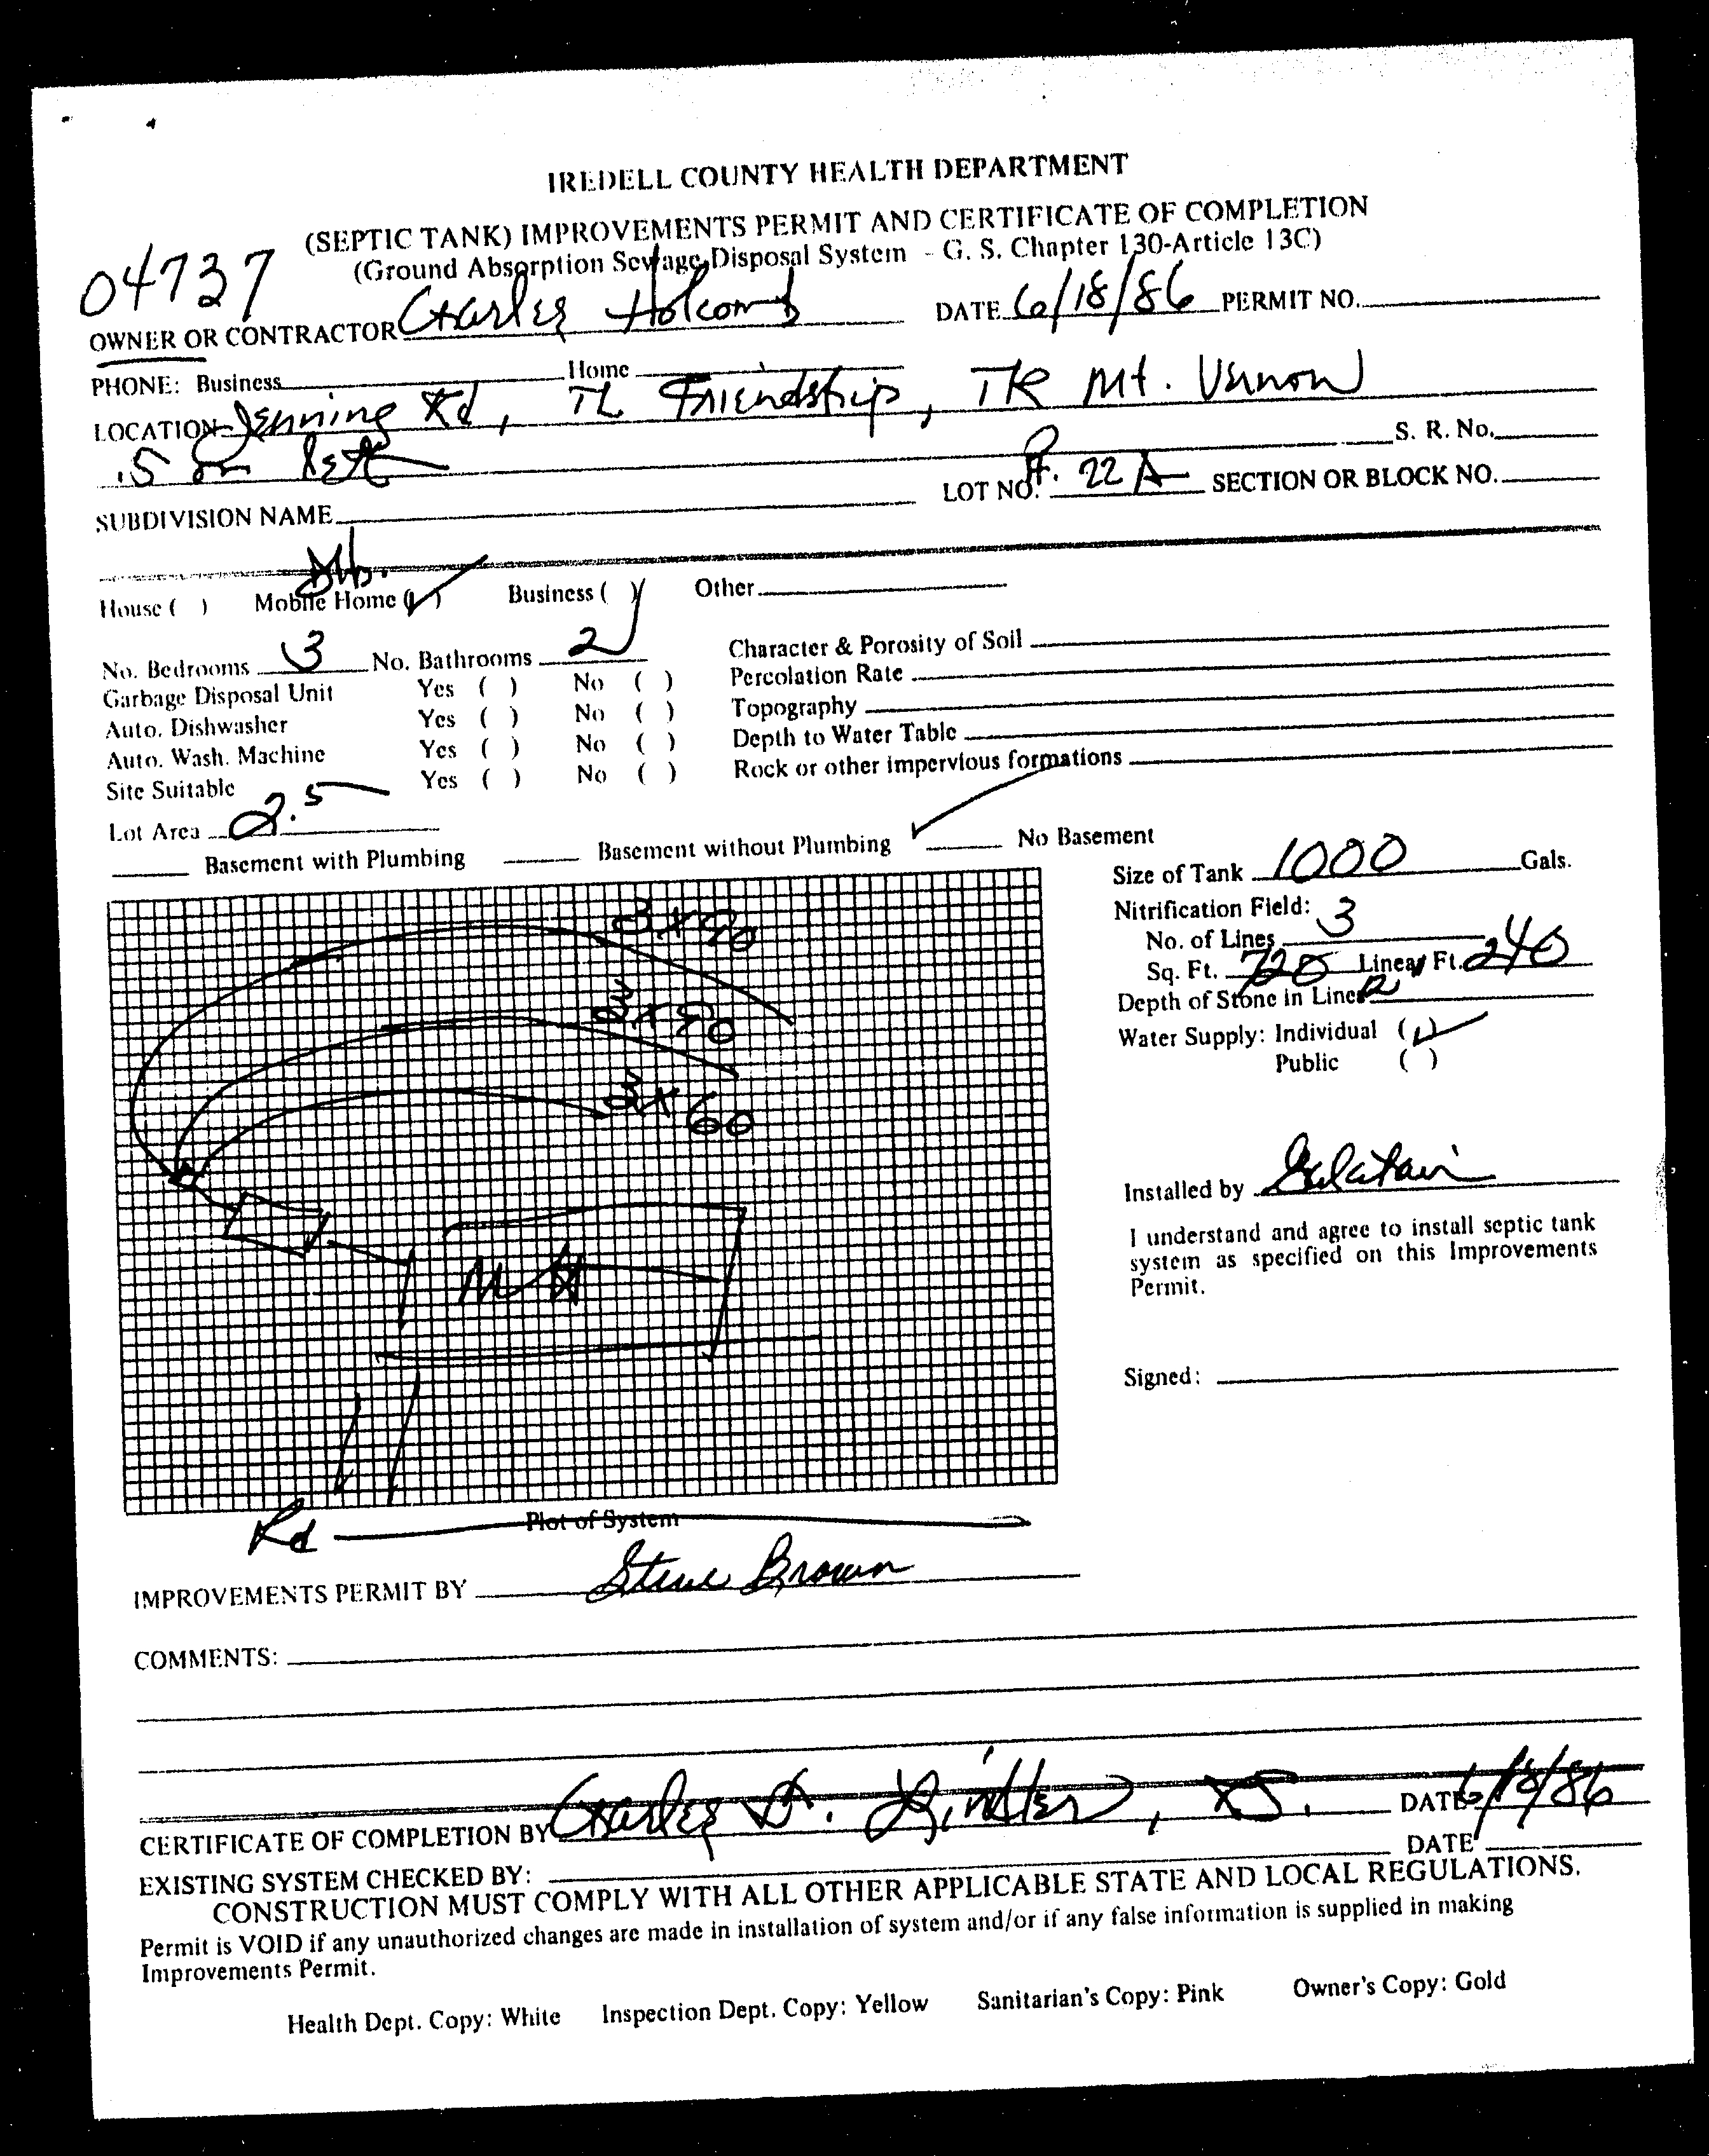 IREDELL COUNTY HEALTH DEPARTMENT
(SEPTIC TANK) IMPROVEMENTS PERMIT AND CERTIFICATE OF COMPLETION
(Ground Absorption Sewage Disposal System - G. S. Chapter 130-Article 13C)
04737
OWNER OR CONTRACTOR Charles Holcomb DATE 6/18/86 PERMIT NO.
PHONE: Business Home
LOCATION Jenning Rd, TL Friendship, TR Mt. Vernon
.5 on left S. R. No.
SUBDIVISION NAME LOT NO. 22A SECTION OR BLOCK NO.
House ( ) Mobile Home (✓) Business ( ) Other
No. Bedrooms 3 No. Bathrooms 2 Character & Porosity of Soil
Garbage Disposal Unit Yes ( ) No ( ) Percolation Rate
Auto. Dishwasher Yes ( ) No ( ) Topography
Auto. Wash. Machine Yes ( ) No ( ) Depth to Water Table
Site Suitable Yes ( ) No ( ) Rock or other impervious formations
Lot Area 2.5
Basement with Plumbing Basement without Plumbing ✓ No Basement
Size of Tank 1000 Gals.
Nitrification Field:
No. of Lines 3
Sq. Ft. 720 Linear Ft. 240
Depth of Stone in Lines 12
Water Supply: Individual (✓)
Public ( )
3x90
3x90
3x60
MH
Installed by
I understand and agree to install septic tank
system as specified on this Improvements
Permit.
Signed:
Rd Plot of System
IMPROVEMENTS PERMIT BY Steve Brown
COMMENTS:
CERTIFICATE OF COMPLETION BY Charles D. DATE
EXISTING SYSTEM CHECKED BY: DATE
CONSTRUCTION MUST COMPLY WITH ALL OTHER APPLICABLE STATE AND LOCAL REGULATIONS.
Permit is VOID if any unauthorized changes are made in installation of system and/or if any false information is supplied in making
Improvements Permit.
Health Dept. Copy: White Inspection Dept. Copy: Yellow Sanitarian's Copy: Pink Owner's Copy: Gold